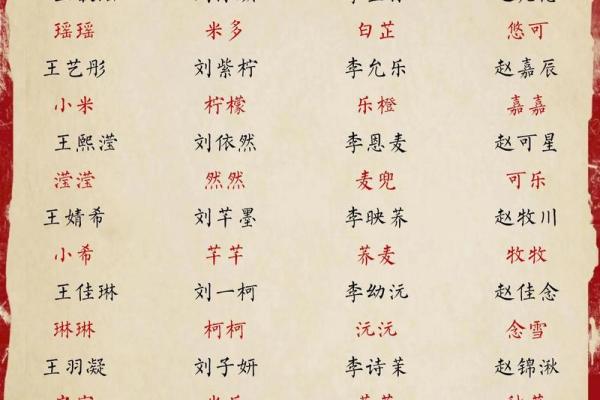 瑶瑶 米多 白芷 悠可
王艺彤 刘紫柠 李允乐 赵嘉辰
小米 柠檬 乐橙 嘉嘉
王熙滢 刘依然 李恩麦 赵可星
滢滢 然然 麦兜 可乐
王婧希 刘芊墨 李映荞 赵牧川
小希 芊芊 荞麦 牧牧
王佳琳 刘一柯 李幼沅 赵佳念
琳琳 柯柯 沅沅 念雪
王羽凝 刘子妍 李诗茉 赵锦湫